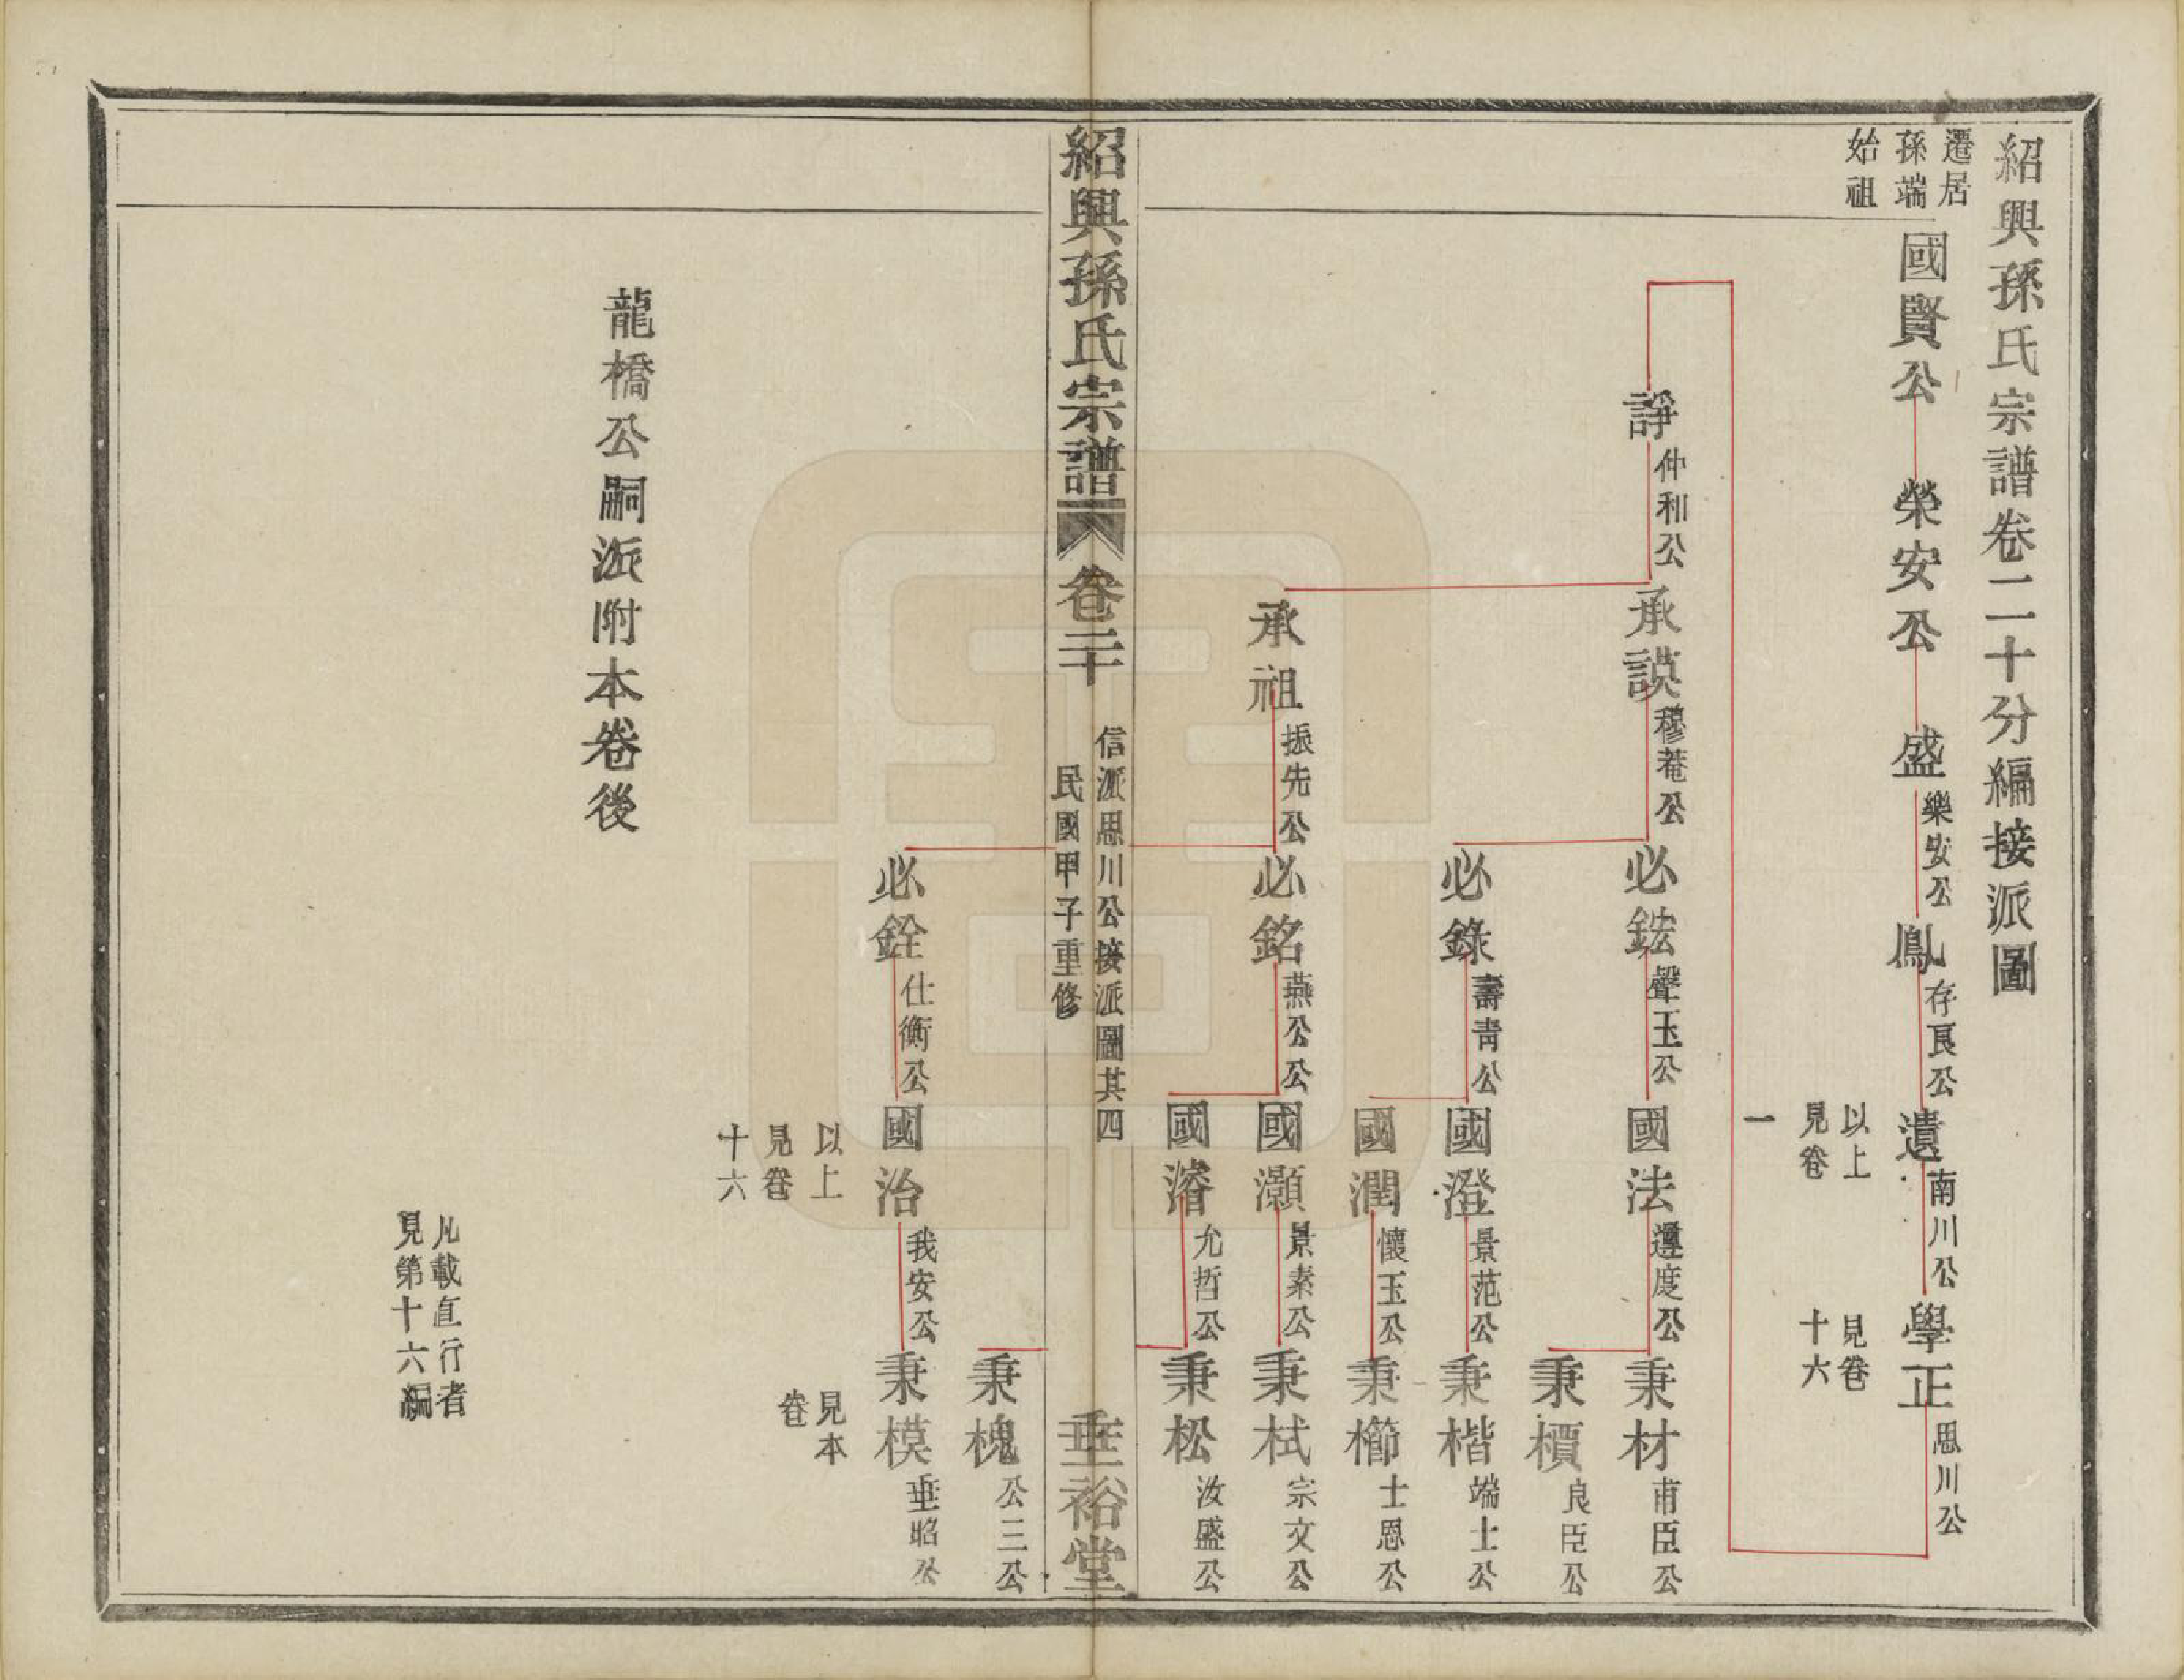 紹興孫氏宗譜卷二十分編接派圖
遷居
孫端
始祖
國賢公
榮安公
盛 樂安公
鳳 存良公
遺 南川公
學正 思川公
以上
見卷
一
見卷
十六
諍 仲和公
承謨 穆菴公
必鋐 聲玉公
國法 遵度公
秉材 甫臣公
秉檟 良臣公
必錄 壽青公
國澄 景范公
秉楷 端士公
國潤 懷玉公
秉櫛 士恩公
承祖 振先公
必銘 燕公公
國灝 景素公
秉栻 宗文公
國濬 允哲公
秉松 汝盛公
紹興孫氏宗譜 卷二十
信派思川公接派圖其四
民國甲子重修
垂裕堂
秉槐 公三公
必銓 仕衡公
國治 我安公
秉模 垂昭公
以上
見卷
十六
見本
卷
龍橋公嗣派附本卷後
凡載直行者
見第十六編